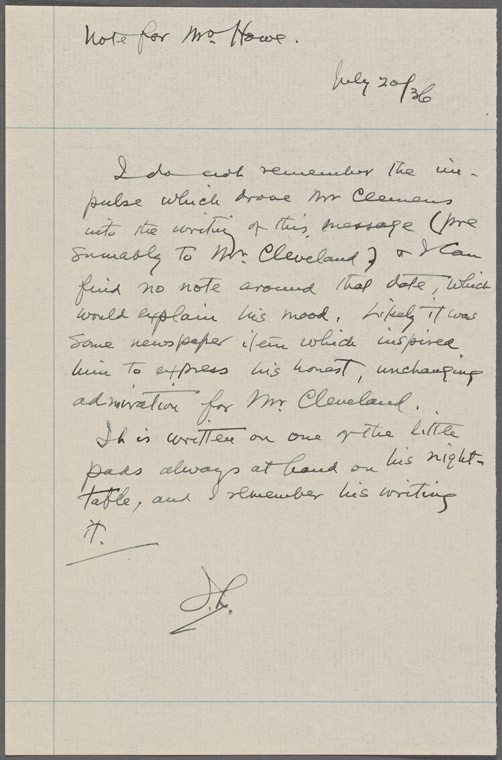 Note for Mr. Howe.
July 20/36
I do not remember the im-
pulse which drove Mr Clemens
into the writing of this message (pre
sumably to Mr. Cleveland) & I can
find no note around that date, which
would explain his mood. Likely it was
some newspaper item which inspired
him to express his honest, unchanging
admiration for Mr. Cleveland.
It is written on one of the little
pads always at hand on his night-
table, and I remember his writing
it.